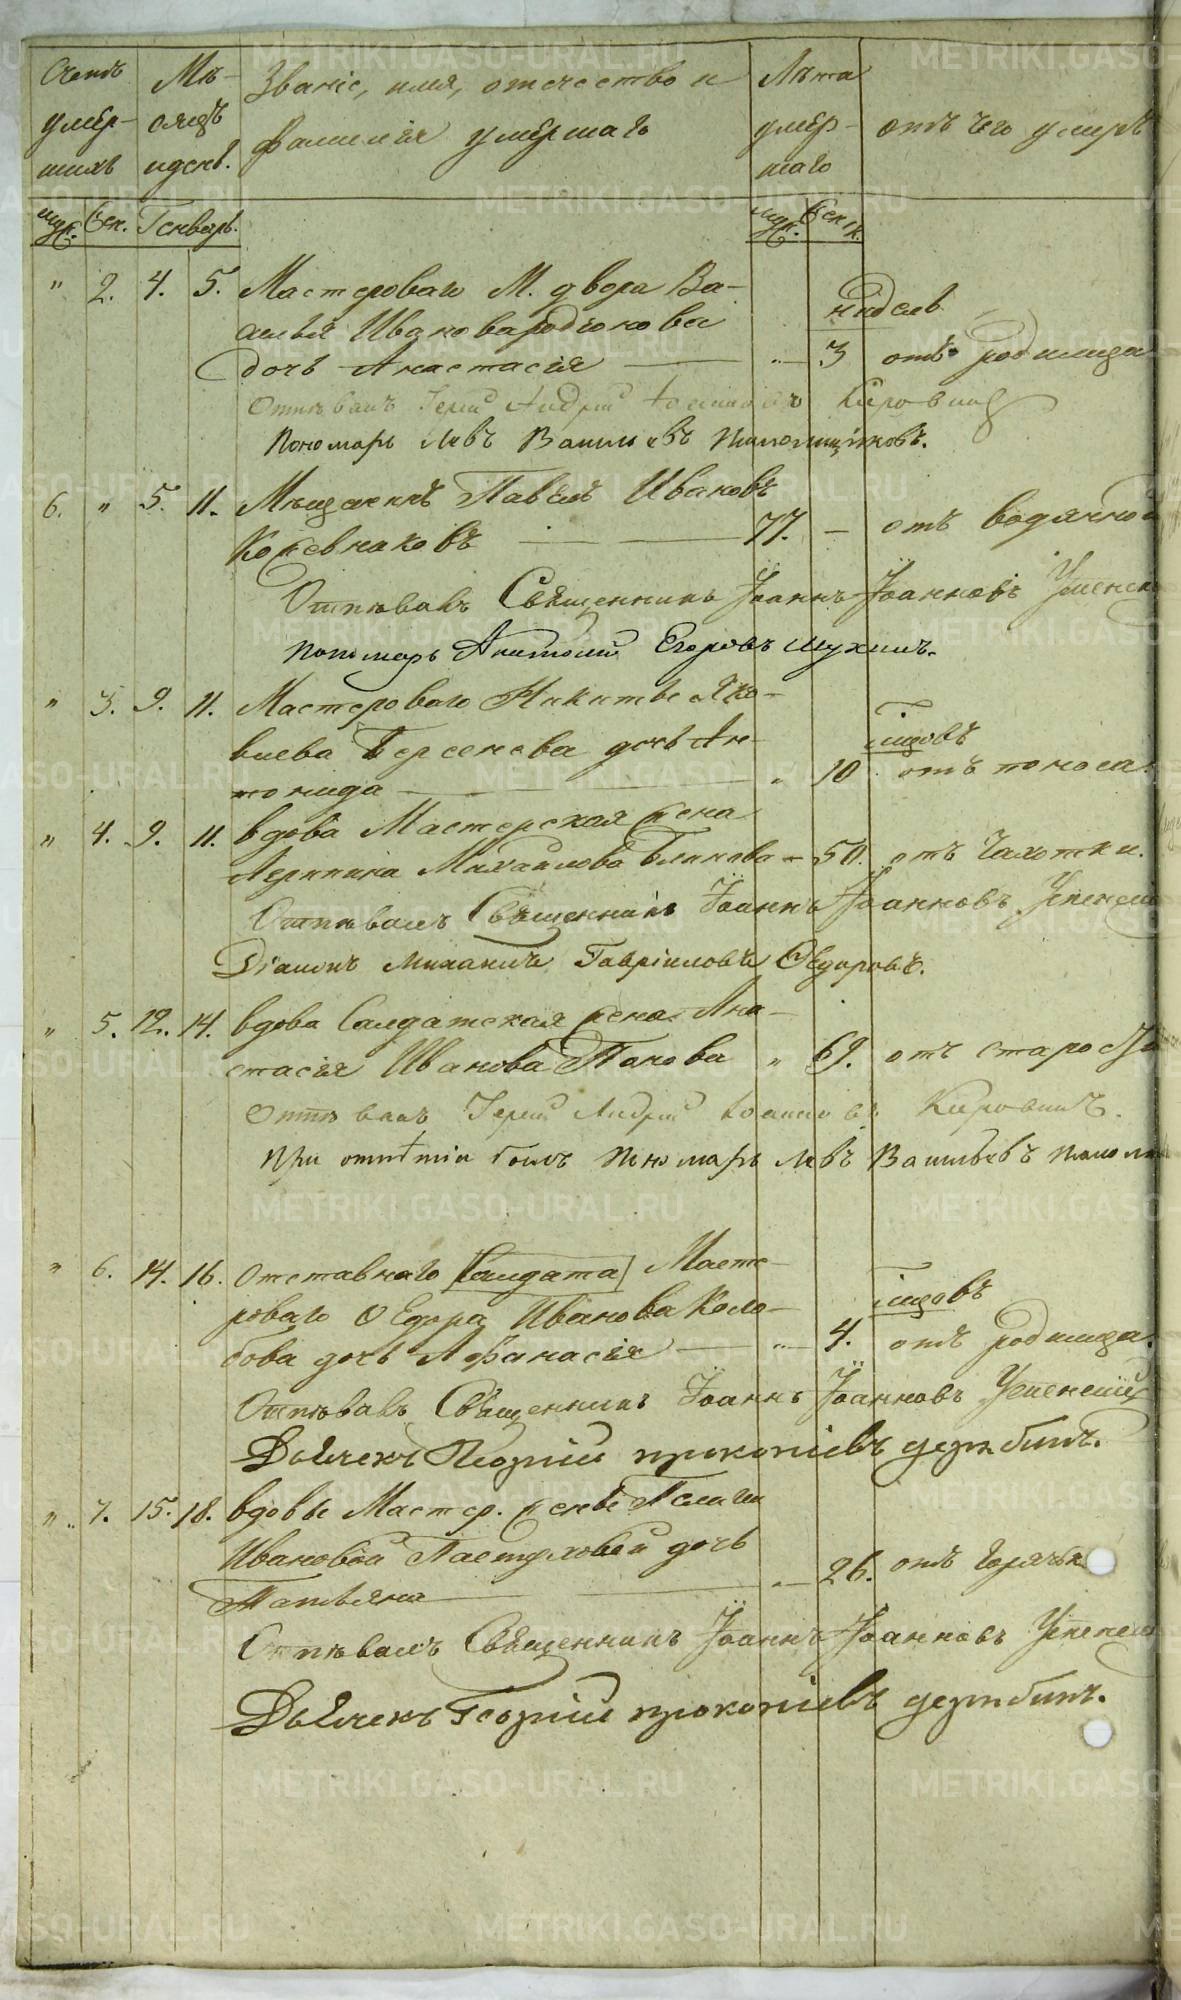 Счетъ умер- шихъ
Мѣ- сяцъ и день.
Званіе, имя, отечество и фамилія умершаго
Лѣта умер- шаго
отъ чего умеръ
муж. жен. Генварь.
муж. женск.
" 2. 4. 5. Мастероваго М. двора Ва-
силья Иванова родіонова
недѣль
дочь Анастасія " 3 отъ родимца
Отпѣвалъ Іерей Андрей Іоанновъ Кировскій
Пономарь Левъ Васильевъ
6. " 5. 11. Мѣщанинъ Павелъ Ивановъ
Кожевниковъ 77. — отъ водяной
Отпѣвалъ Священникъ Іоаннъ Іоанновъ Успенск
пономарь Анатолій Егоровъ Мухинъ.
" 3. 9. 11. Мастероваго Никиты Яко-
влева Берсенева дочь Ан-
мцовъ
тонида " 10 отъ поноса.
" 4. 9. 11. вдова Мастерская жена
Агрипина Михайлова Блинова — 50. отъ Чахотки.
Отпѣвалъ Священникъ Іоаннъ Іоанновъ Успенскій
Діаконъ Михаилъ Гавріиловъ Ѳедоровъ.
" 5. 12. 14. вдова Салдатская жена Ана-
стасія Иванова Попова " 69. отъ старос
Отпѣвалъ Іерей Андрей Іоанновъ
При отпѣтіи былъ Пономарь Левъ Васильевъ
" 6. 14. 16. Отставного [Салдата] Масте-
роваго Ѳедора Иванова Коло-
мцовъ
бова дочь Афанасія " 4. отъ родимца.
Отпѣвалъ Священникъ Іоаннъ Іоанновъ Успенскій
Дьячекъ Георгій прокопіевъ дерябинъ.
" 7. 15. 18. вдовы Мастер. жены Пелагіи
Ивановой Пастуховой дочь
Татьяна " 26. отъ Горячк
Отпѣвалъ Священникъ Іоаннъ Іоанновъ Успенск
Дьячекъ Георгій прокопіевъ дерябинъ.
METRIKI.GASO-URAL.RU